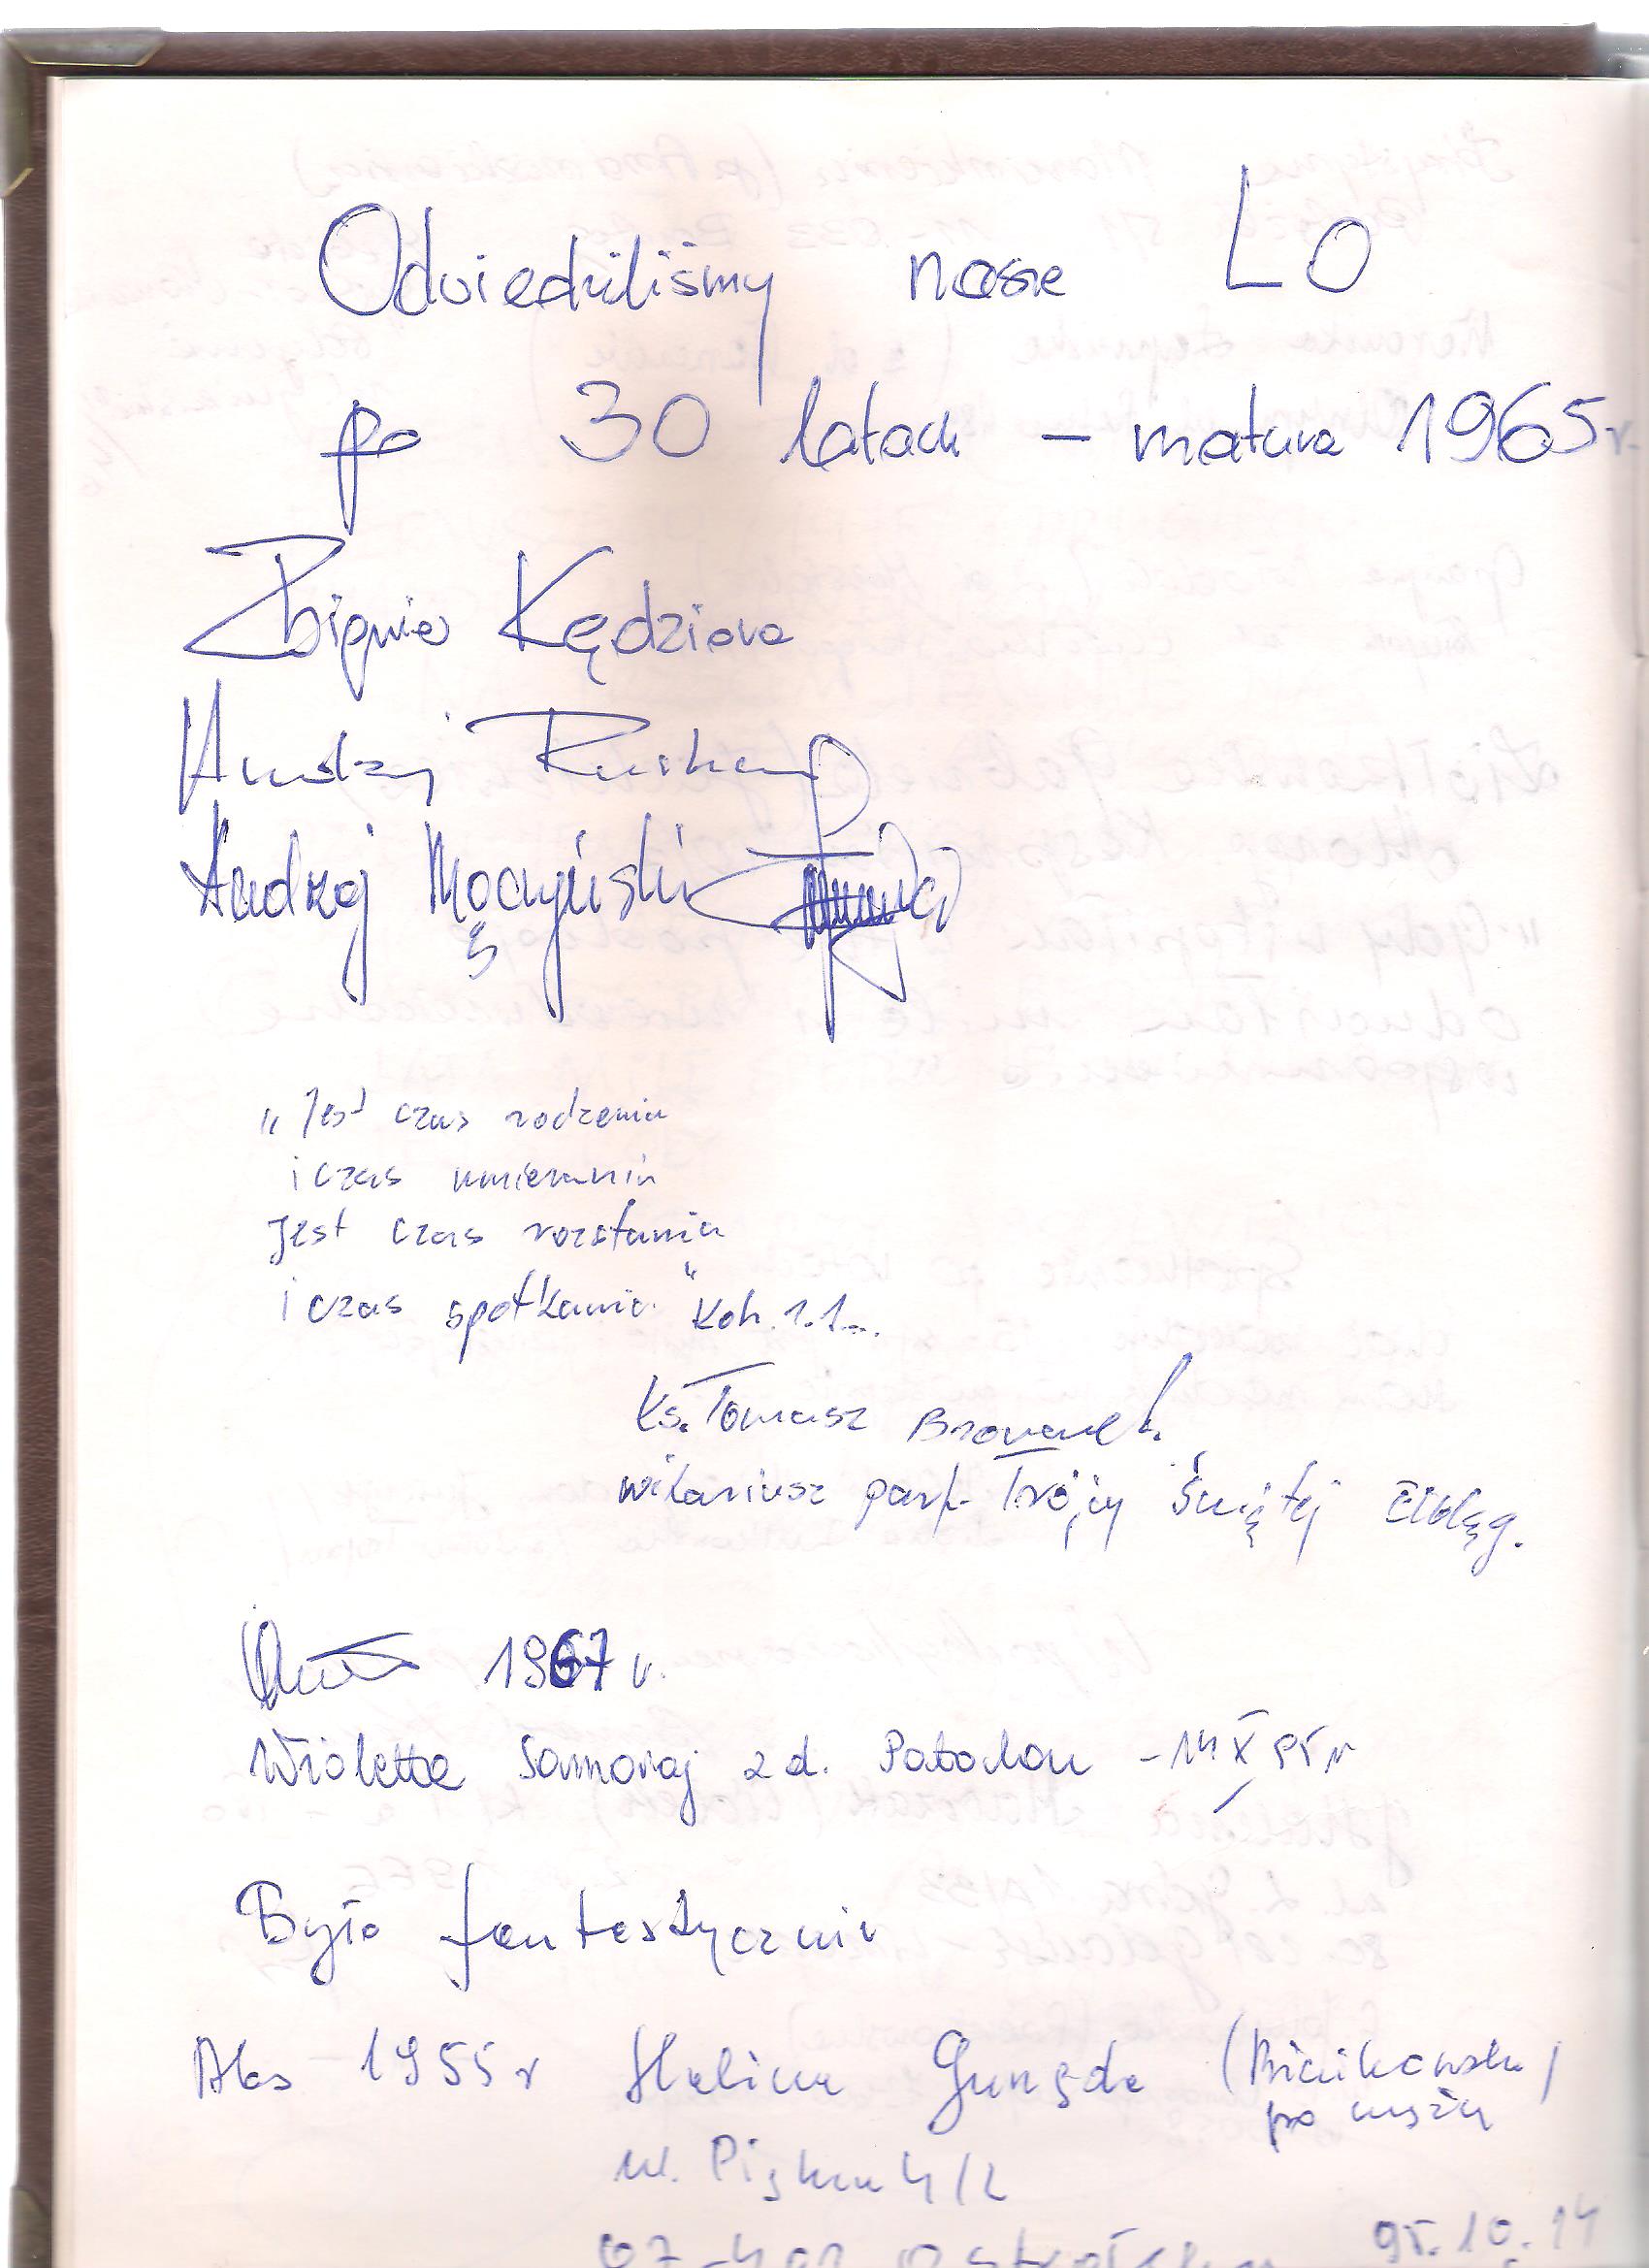 Odwiedziliśmy nasze LO
po 30 latach – matura 1965r.
Zbigniew Kędziora
Andrzej
Andrzej Mączyński
„Jest czas rodzenia
i czas umierania
Jest czas rozstania
i czas spotkania" Koh. 1.1...
Ks. Tomasz
wikariusz par. Trójcy Świętej Elbląg.
1967 r.
Wioletta Samoraj z d. Patochou - 14 X 95 r
Było fantastycznie
Abs - 1955 r Halina
po mężu
ul. 4/2
95.10.14